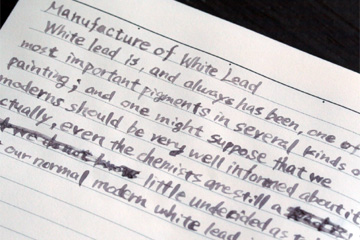 Manufacture of White Lead
White lead is, and always has been, one of
most important pigments in several kinds o
painting; and one might suppose that we
moderns should be very well informed about it
ctually, even the chemists are still a
little undecided as t
our normal modern white lead i